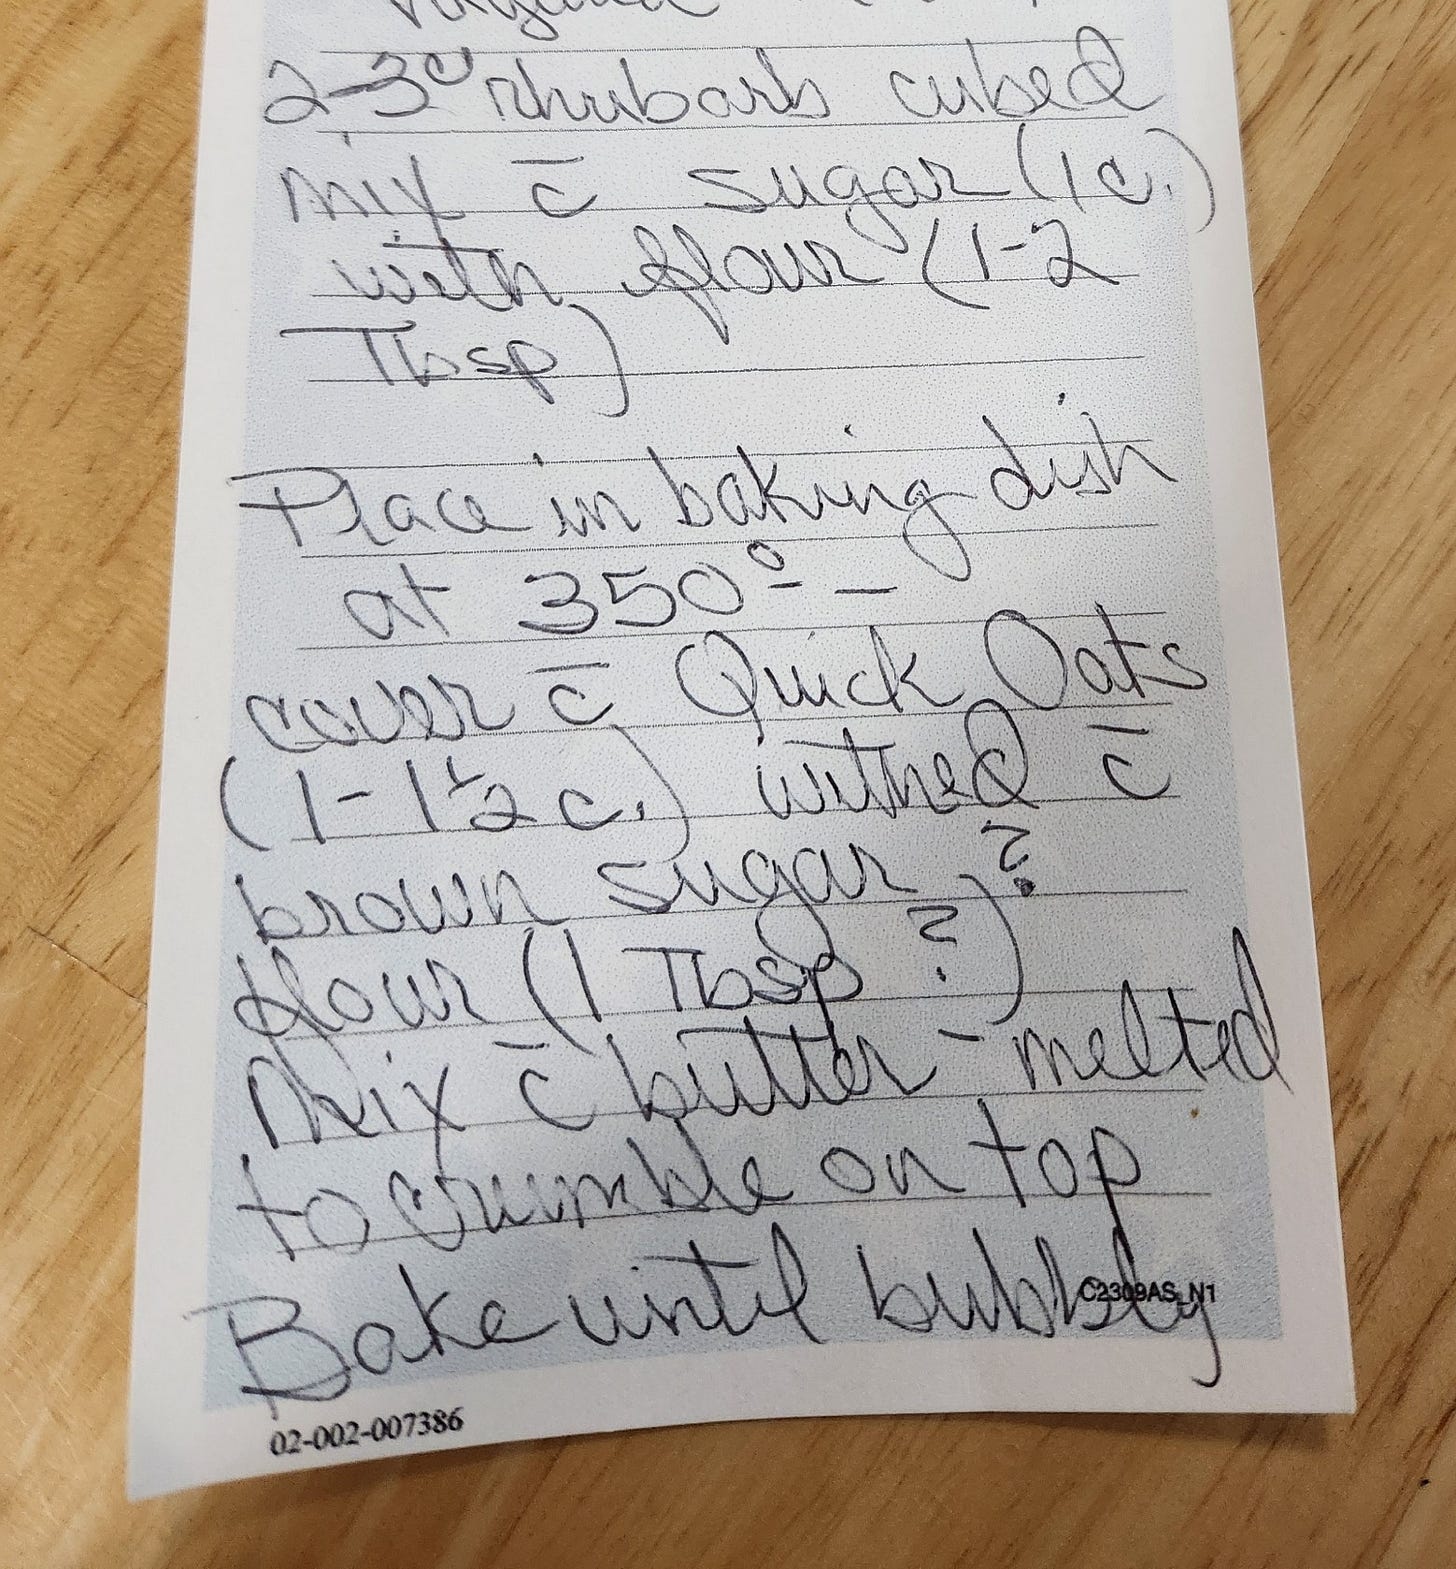 2-3c rhubarb cubed
mix c̄ sugar (1c.)
with flour (1-2
Tbsp)
Place in baking dish
at 350° - -
cover c̄ Quick Oats
(1-1½ c.) withed c̄
brown sugar ?
flour (1 Tbsp ?)
Mix c̄ butter - melted
to crumble on top
Bake until bubbly
C2309AS_N1
02-002-007386